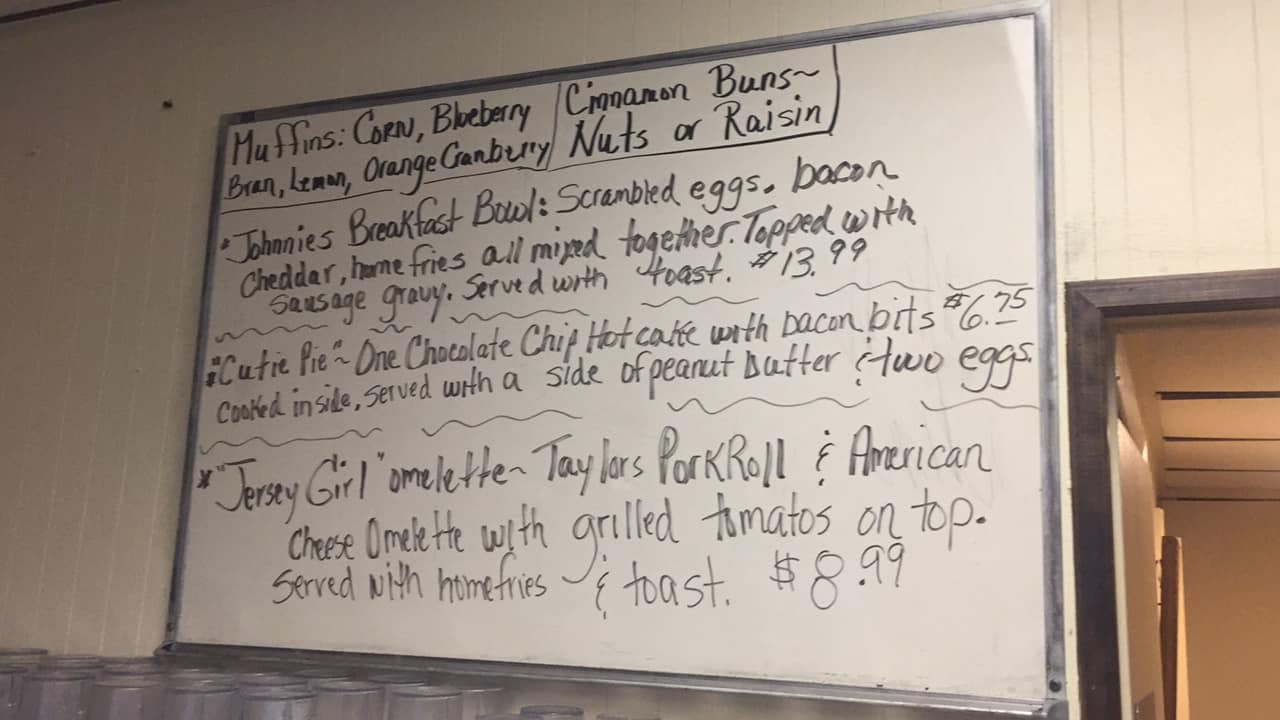 Muffins: Corn, Blueberry
Bran, Lemon, Orange Cranberry
Cinnamon Buns~
Nuts or Raisin
* Johnnies Breakfast Bowl: Scrambled eggs, bacon
Cheddar, home fries all mixed together. Topped with
Sausage gravy. Served with toast. $13.99
* "Cutie Pie"~ One Chocolate Chip Hotcake with bacon bits $6.75
cooked inside, served with a side of peanut butter & two eggs.
* "Jersey Girl" omelette~ Taylors Pork Roll & American
Cheese Omelette with grilled tomatos on top.
Served with homefries & toast. $8.99